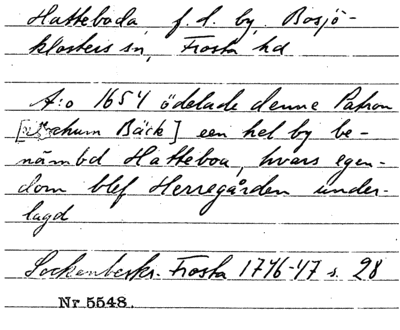 Hatteboda, f. d. by, Bosjö-
klosters sn, Frosta hd
A:o 1654 ödelade denne Patron
Bäck] een hel by be-
nämbd Hatteboa, hvars egen-
dom blef Herregården under-
lagd
Sockenbeskr. Frosta 1746-47 s. 28
Nr 5548.